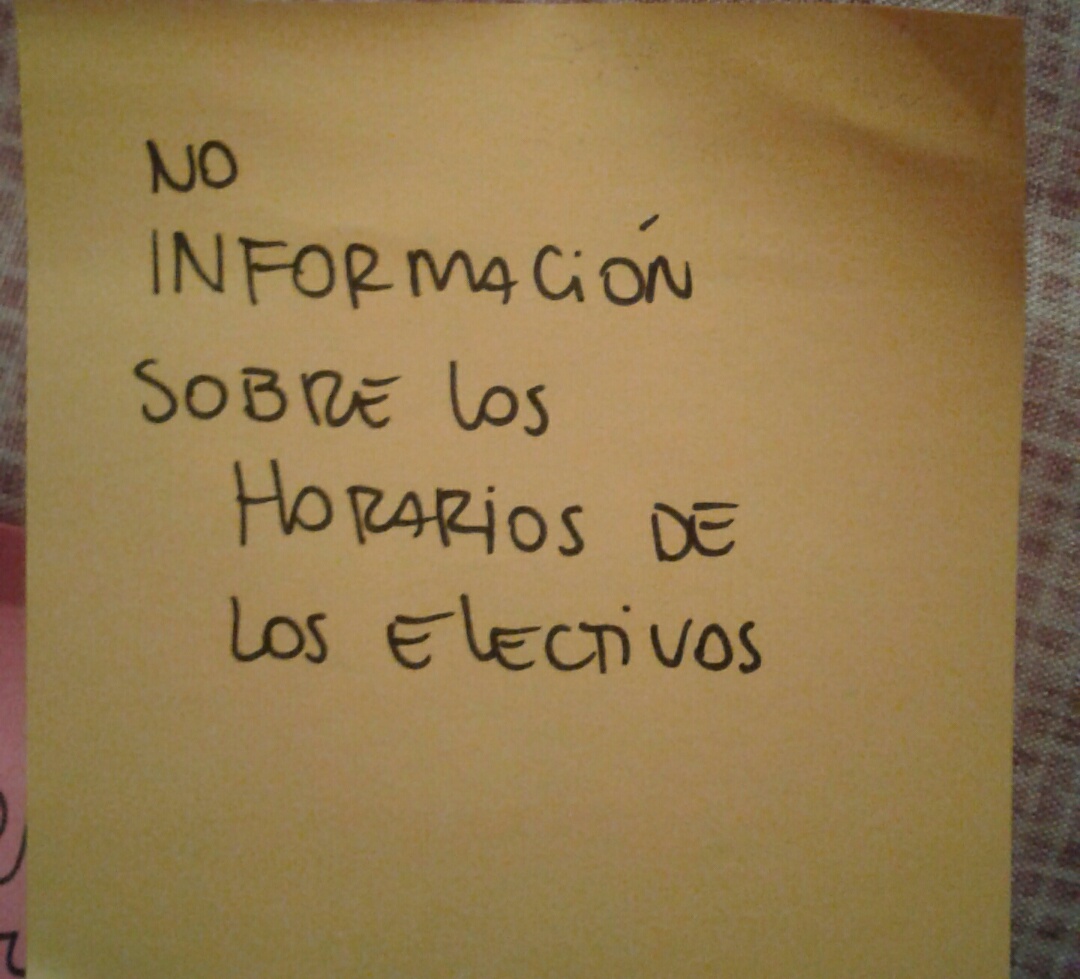 NO
INFORMACIÓN
SOBRE los
HORARIOS DE
LOS ELECTIVOS